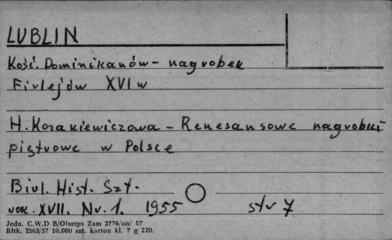 LUBLIN
Kość. Dominikanów - nagrobek
Firlejów XVI w
H. Kozakiewiczowa - Renesansowe nagrobki
piętrowe w Polsce
Biul. Hist. Szt.
rok. XVII. Nr. 1. 1955 str 7
Jedn. C.W.D B/Olsztyn Zam 2776/on/ 57
Bltk. 2563/57 10.000 szt. karton kl. 7 g 220.